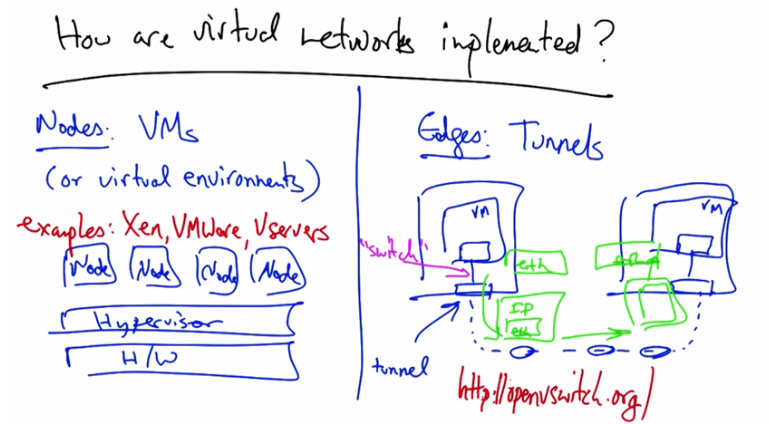 How are virtual networks implemented?
Nodes: VMs
(or virtual environments)
examples: Xen, VMWare, Vservers
Node Node Node Node
Hypervisor
H/W
Edges: Tunnels
VM VM
"switch"
eth
IP
eth
tunnel
http://openvswitch.org/